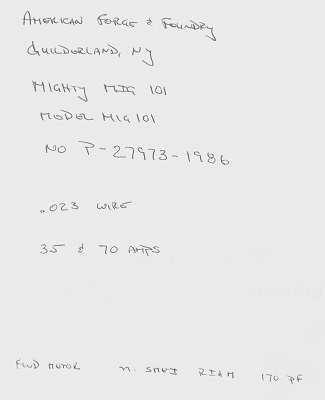 AMERICAN FORGE & FOUNDRY
GUILDERLAND, NY
MIGHTY MIG 101
MODEL MIG 101
NO P-27973-1986
.023 WIRE
35 & 70 AMPS
MOTOR